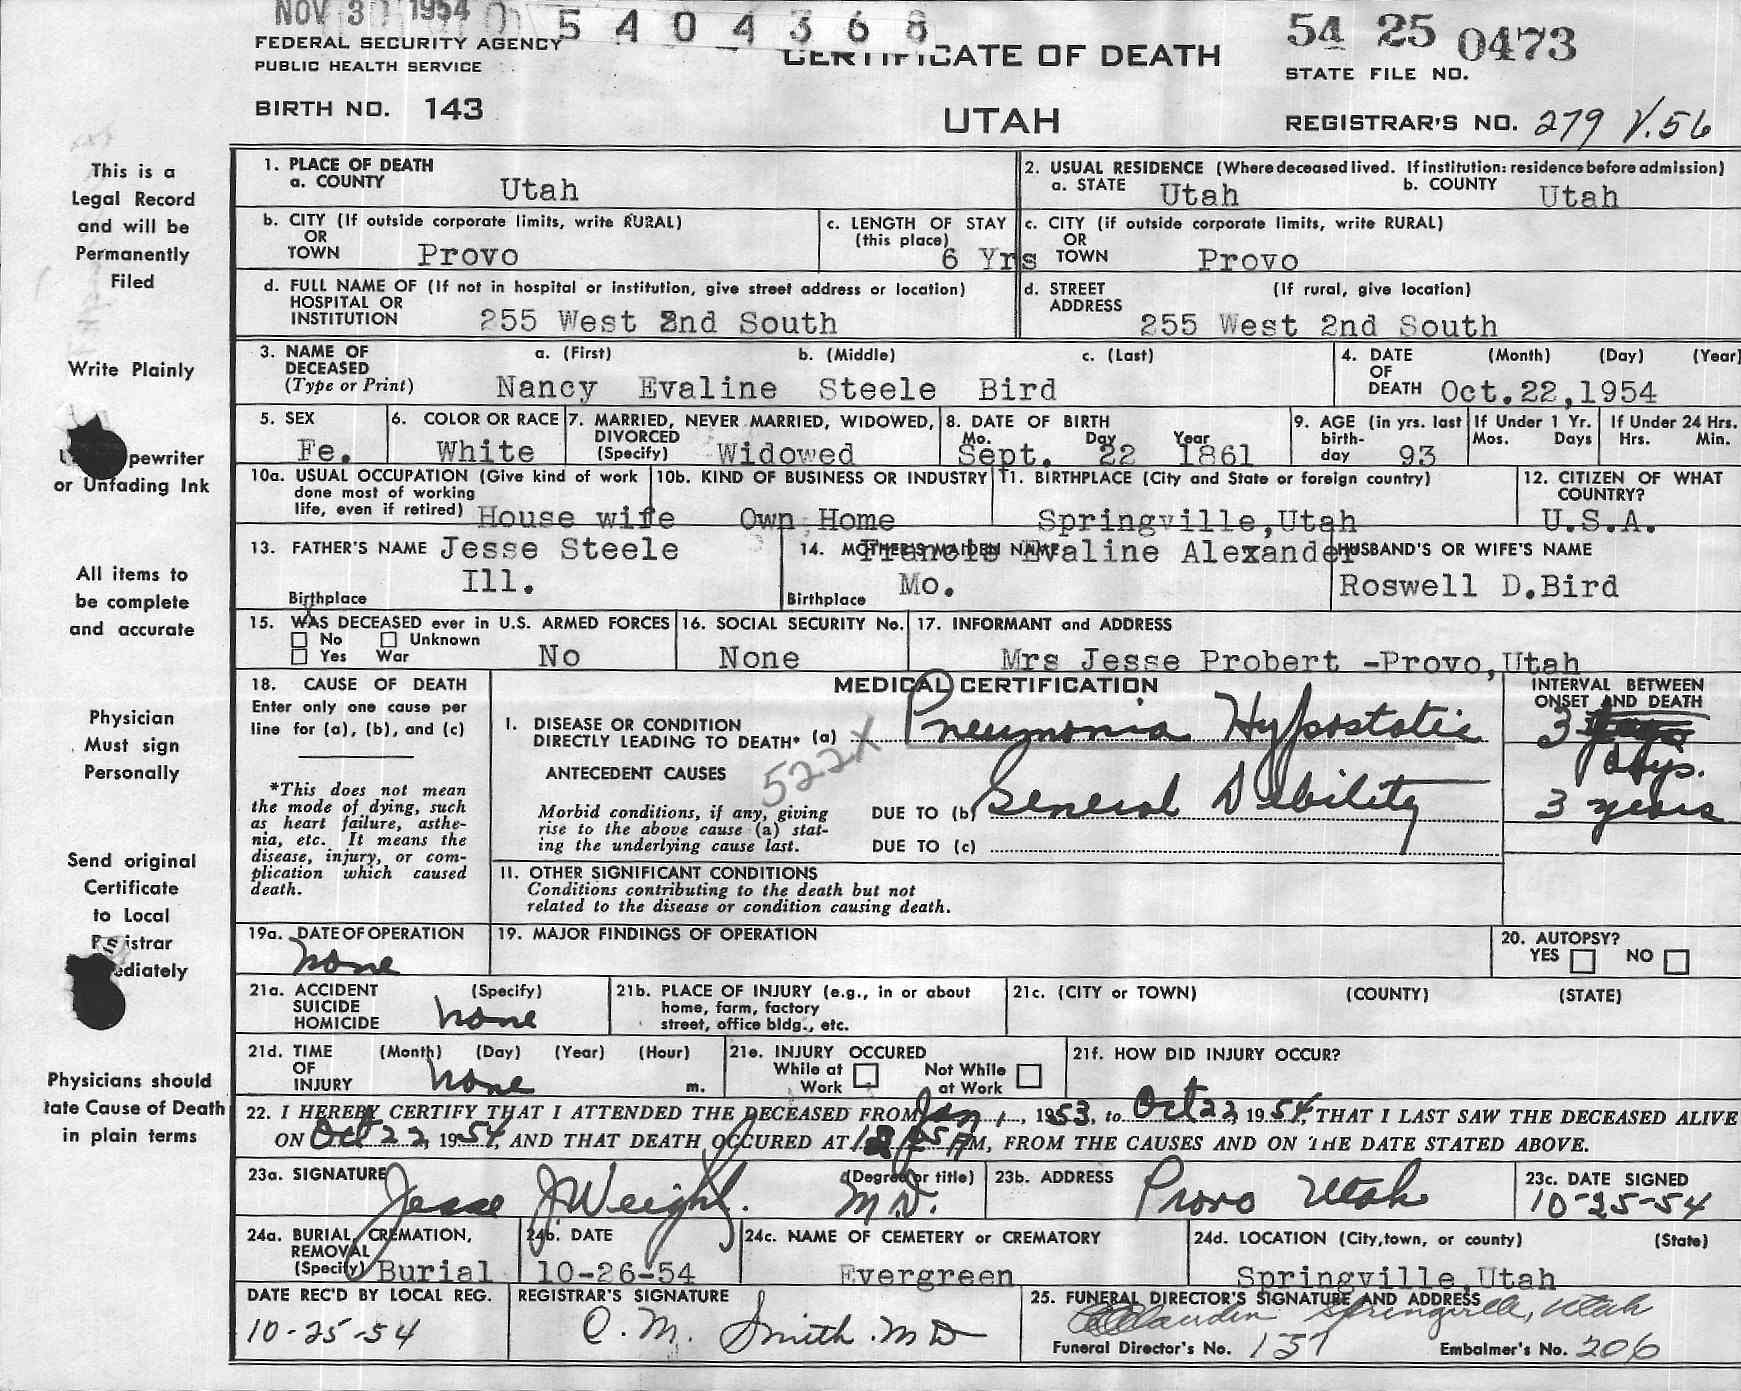 NOV 30 1954
5404368
54 25 0473
FEDERAL SECURITY AGENCY
PUBLIC HEALTH SERVICE
CERTIFICATE OF DEATH
STATE FILE NO.
BIRTH NO. 143
UTAH
REGISTRAR'S NO. 279 V.56
This is a
Legal Record
and will be
Permanently
Filed
Write Plainly
pewriter
or Unfading Ink
All items to
be complete
and accurate
Physician
Must sign
Personally
Send original
Certificate
to Local
Registrar
ediately
Physicians should
tate Cause of Death
in plain terms
1. PLACE OF DEATH
a. COUNTY Utah
2. USUAL RESIDENCE (Where deceased lived. If institution: residence before admission)
a. STATE Utah b. COUNTY Utah
b. CITY (If outside corporate limits, write RURAL)
OR
TOWN Provo
c. LENGTH OF STAY
(this place)
6 Yrs
c. CITY (if outside corporate limits, write RURAL)
OR
TOWN Provo
d. FULL NAME OF (If not in hospital or institution, give street address or location)
HOSPITAL OR
INSTITUTION 255 West 2nd South
d. STREET (If rural, give location)
ADDRESS
255 West 2nd South
3. NAME OF a. (First) b. (Middle) c. (Last)
DECEASED
(Type or Print) Nancy Evaline Steele Bird
4. DATE (Month) (Day) (Year)
OF
DEATH Oct.22,1954
5. SEX
Fe.
6. COLOR OR RACE
White
7. MARRIED, NEVER MARRIED, WIDOWED,
DIVORCED
(Specify) Widowed
8. DATE OF BIRTH
Mo. Day Year
Sept. 22 1861
9. AGE (in yrs. last
birth-
day 93
If Under 1 Yr.
Mos. Days
If Under 24 Hrs.
Hrs. Min.
10a. USUAL OCCUPATION (Give kind of work
done most of working
life, even if retired) House wife
10b. KIND OF BUSINESS OR INDUSTRY
Own Home
11. BIRTHPLACE (City and State or foreign country)
Springville,Utah
12. CITIZEN OF WHAT
COUNTRY?
U.S.A.
13. FATHER'S NAME Jesse Steele
Ill.
Birthplace
14. MOTHER'S MAIDEN NAME Francis Evaline Alexander
Mo.
Birthplace
HUSBAND'S OR WIFE'S NAME
Roswell D.Bird
15. WAS DECEASED ever in U.S. ARMED FORCES
No Unknown
Yes War No
16. SOCIAL SECURITY No.
None
17. INFORMANT and ADDRESS
Mrs Jesse Probert -Provo,Utah
18. CAUSE OF DEATH
Enter only one cause per
line for (a), (b), and (c)
*This does not mean
the mode of dying, such
as heart failure, asthe-
nia, etc. It means the
disease, injury, or com-
plication which caused
death.
MEDICAL CERTIFICATION
INTERVAL BETWEEN
ONSET AND DEATH
I. DISEASE OR CONDITION
DIRECTLY LEADING TO DEATH* (a) Pneumonia Hypostatic
3
days.
522X
ANTECEDENT CAUSES
Morbid conditions, if any, giving
rise to the above cause (a) stat-
ing the underlying cause last.
DUE TO (b) General Debility 3 years
DUE TO (c)
II. OTHER SIGNIFICANT CONDITIONS
Conditions contributing to the death but not
related to the disease or condition causing death.
19a. DATE OF OPERATION
none
19. MAJOR FINDINGS OF OPERATION
20. AUTOPSY?
YES NO
21a. ACCIDENT (Specify)
SUICIDE
HOMICIDE none
21b. PLACE OF INJURY (e.g., in or about
home, farm, factory
street, office bldg., etc.
21c. (CITY or TOWN) (COUNTY) (STATE)
21d. TIME (Month) (Day) (Year) (Hour)
OF
INJURY none m.
21e. INJURY OCCURED
While at Not While
Work at Work
21f. HOW DID INJURY OCCUR?
22. I HEREBY CERTIFY THAT I ATTENDED THE DECEASED FROM Jan 1, 1953, to Oct 22, 1954, THAT I LAST SAW THE DECEASED ALIVE
ON Oct 22, 1954, AND THAT DEATH OCCURED AT M, FROM THE CAUSES AND ON THE DATE STATED ABOVE.
23a. SIGNATURE (Degree or title)
Jesse J Weight. M.D.
23b. ADDRESS
Provo Utah
23c. DATE SIGNED
10-25-54
24a. BURIAL, CREMATION,
REMOVAL
(Specify) Burial
24b. DATE
10-26-54
24c. NAME OF CEMETERY or CREMATORY
Evergreen
24d. LOCATION (City,town, or county) (State)
Springville,Utah
DATE REC'D BY LOCAL REG.
10-25-54
REGISTRAR'S SIGNATURE
C.M. Smith. MD
25. FUNERAL DIRECTOR'S SIGNATURE AND ADDRESS
Springville, Utah
Funeral Director's No. 137 Embalmer's No. 206